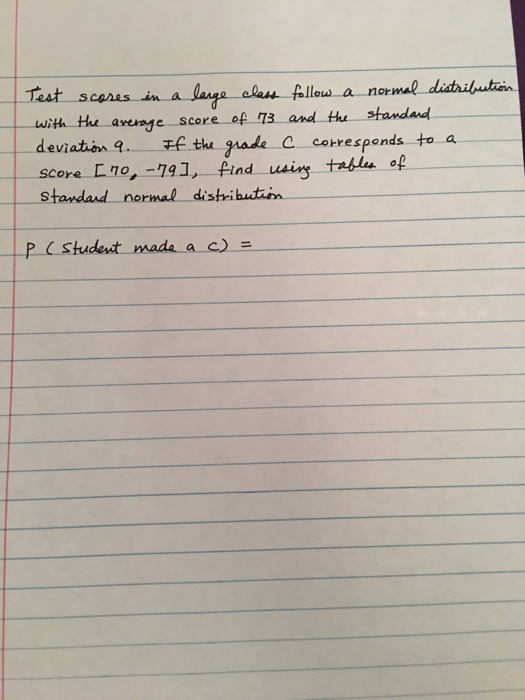 Test scores in a large class follow a normal distribution
with the average score of 73 and the standard
deviation 9. If the grade C corresponds to a
score [70, -79], find using tables of
standard normal distribution
P (student made a c) =